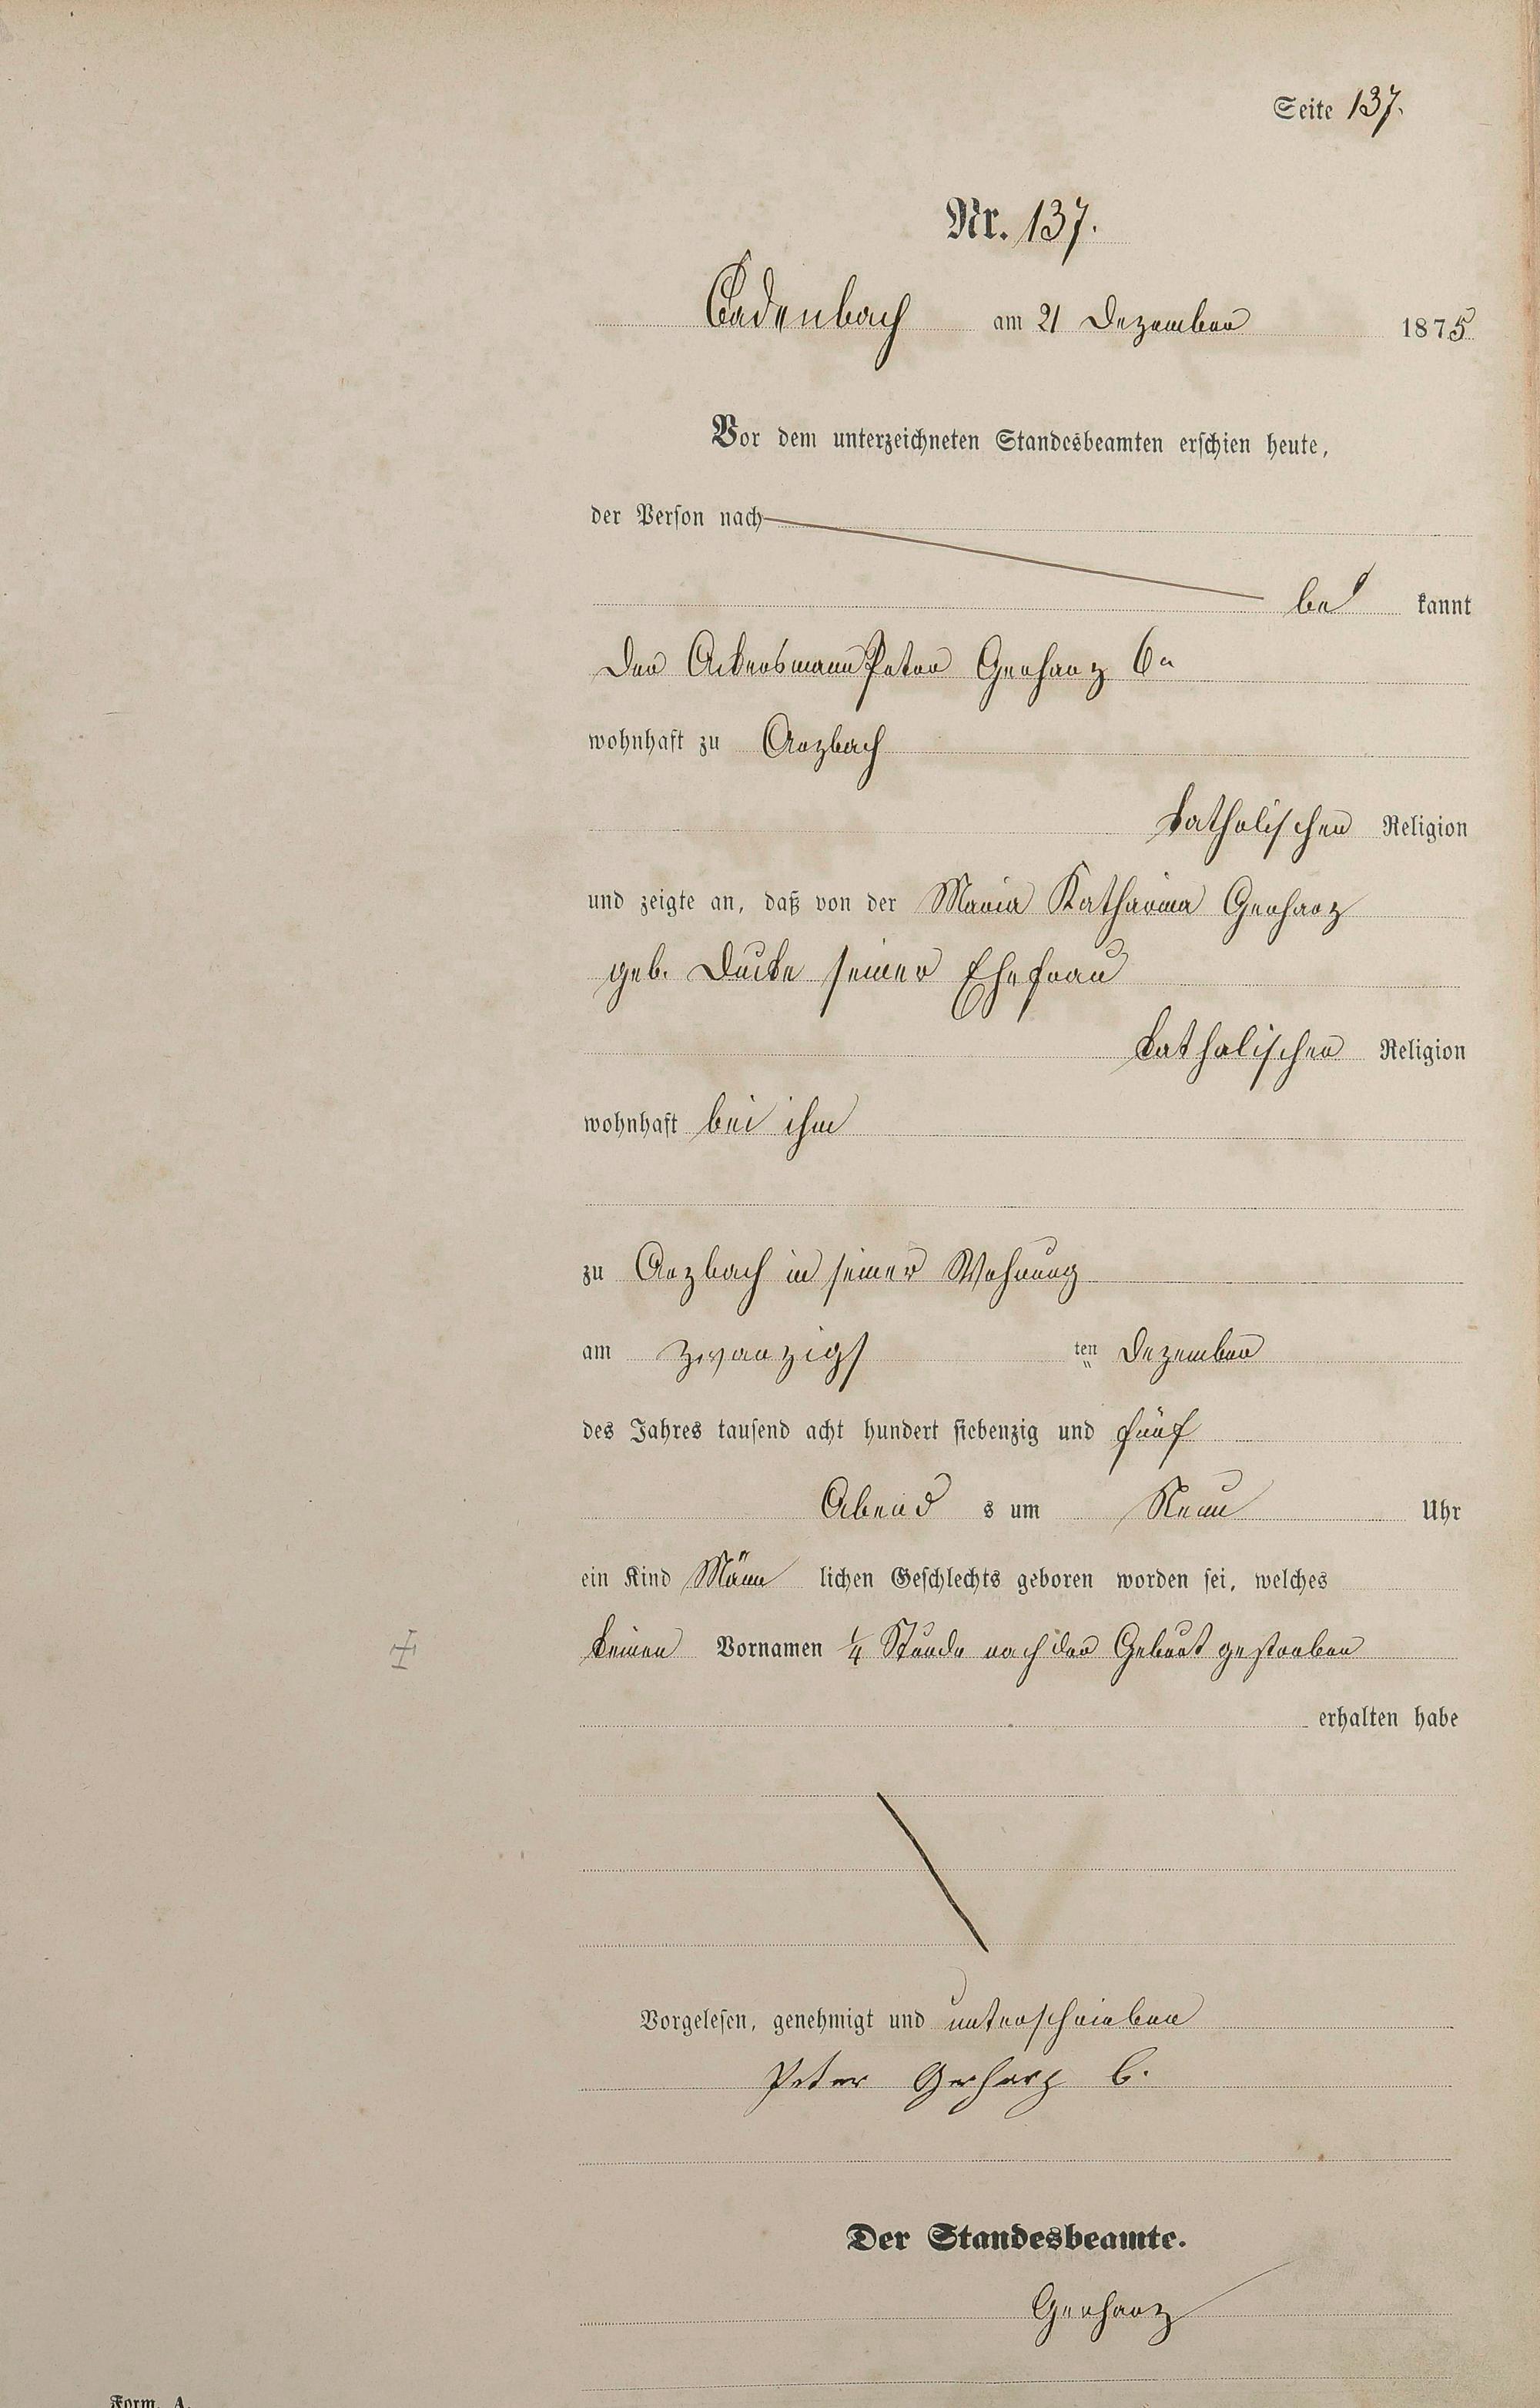 Seite 137.
Nr. 137.
Cadenbach am 21 Dezember 1875
Vor dem unterzeichneten Standesbeamten erschien heute,
der Person nach
be kannt
der Ackersmann Peter Gerharz 6r
wohnhaft zu Arzbach
katholischer Religion
und zeigte an, daß von der Maria Katharina Gerharz
geb. Ducke seiner Ehefrau
katholischer Religion
wohnhaft bei ihm
zu Arzbach in seiner Wohnung
am zwanzigs ten Dezember
des Jahres tausend acht hundert siebenzig und fünf
Abend s um Neun Uhr
ein Kind Männ lichen Geschlechts geboren worden sei, welches
keinen Vornamen ¼ Stunde nach der Geburt gestorben
erhalten habe
Vorgelesen, genehmigt und unterschrieben
Peter Gerharz 6.
Der Standesbeamte.
Gerharz
Form. A.